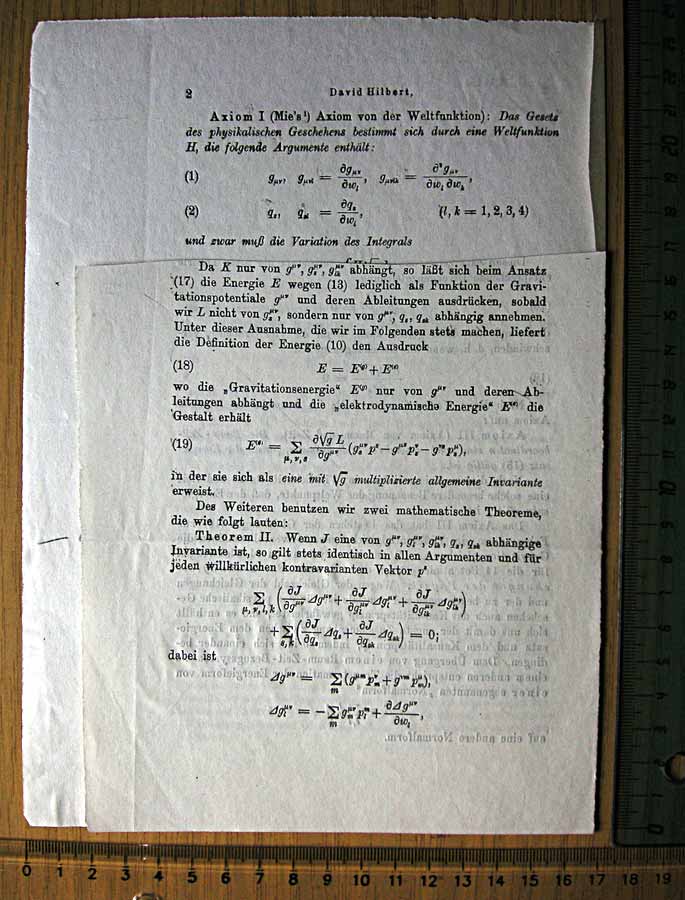 2
David Hilbert,
Axiom I (Mie's¹) Axiom von der Weltfunktion): Das Gesetz
des physikalischen Geschehens bestimmt sich durch eine Weltfunktion
H, die folgende Argumente enthält:
(1) g_{μν}, g_{μνl} = ∂g_{μν}/∂w_l, g_{μνlk} = ∂²g_{μν}/∂w_l ∂w_k,
(2) q_s, q_{sl} = ∂q_s/∂w_l, (l, k = 1, 2, 3, 4)
und zwar muß die Variation des Integrals
Da K nur von g^{μν}, g_s^{μν}, g_{lk}^{μν} abhängt, so läßt sich beim Ansatz
(17) die Energie E wegen (13) lediglich als Funktion der Gravi-
tationspotentiale g^{μν} und deren Ableitungen ausdrücken, sobald
wir L nicht von g_s^{μν}, sondern nur von g^{μν}, q_s, q_{sk} abhängig annehmen.
Unter dieser Ausnahme, die wir im Folgenden stets machen, liefert
die Definition der Energie (10) den Ausdruck
(18) E = E^{(g)} + E^{(e)}
wo die „Gravitationsenergie“ E^{(g)} nur von g^{μν} und deren Ab-
leitungen abhängt und die „elektrodynamische Energie“ E^{(e)} die
Gestalt erhält
(19) E^{(e)} = Σ_{μ, ν, s} ∂√g L/∂g^{μν} (g_s^{μν} p^s − g^{μs} p_s^ν − g^{νs} p_s^μ),
in der sie sich als eine mit √g multiplizierte allgemeine Invariante
erweist.
Des Weiteren benutzen wir zwei mathematische Theoreme,
die wie folgt lauten:
Theorem II. Wenn J eine von g^{μν}, g_l^{μν}, g_{lk}^{μν}, q_s, q_{sk} abhängige
Invariante ist, so gilt stets identisch in allen Argumenten und für
jeden willkürlichen kontravarianten Vektor p^s
Σ_{μ, ν, l, k} (∂J/∂g^{μν} Δg^{μν} + ∂J/∂g_l^{μν} Δg_l^{μν} + ∂J/∂g_{lk}^{μν} Δg_{lk}^{μν})
+ Σ_{s, k} (∂J/∂q_s Δq_s + ∂J/∂q_{sk} Δq_{sk}) = 0;
dabei ist
Δg^{μν} = Σ_m (g^{μm} p_m^ν + g^{νm} p_m^μ),
Δg_l^{μν} = − Σ_m g_m^{μν} p_l^m + ∂Δg^{μν}/∂w_l,
0 1 2 3 4 5 6 7 8 9 10 11 12 13 14 15 16 17 18 19